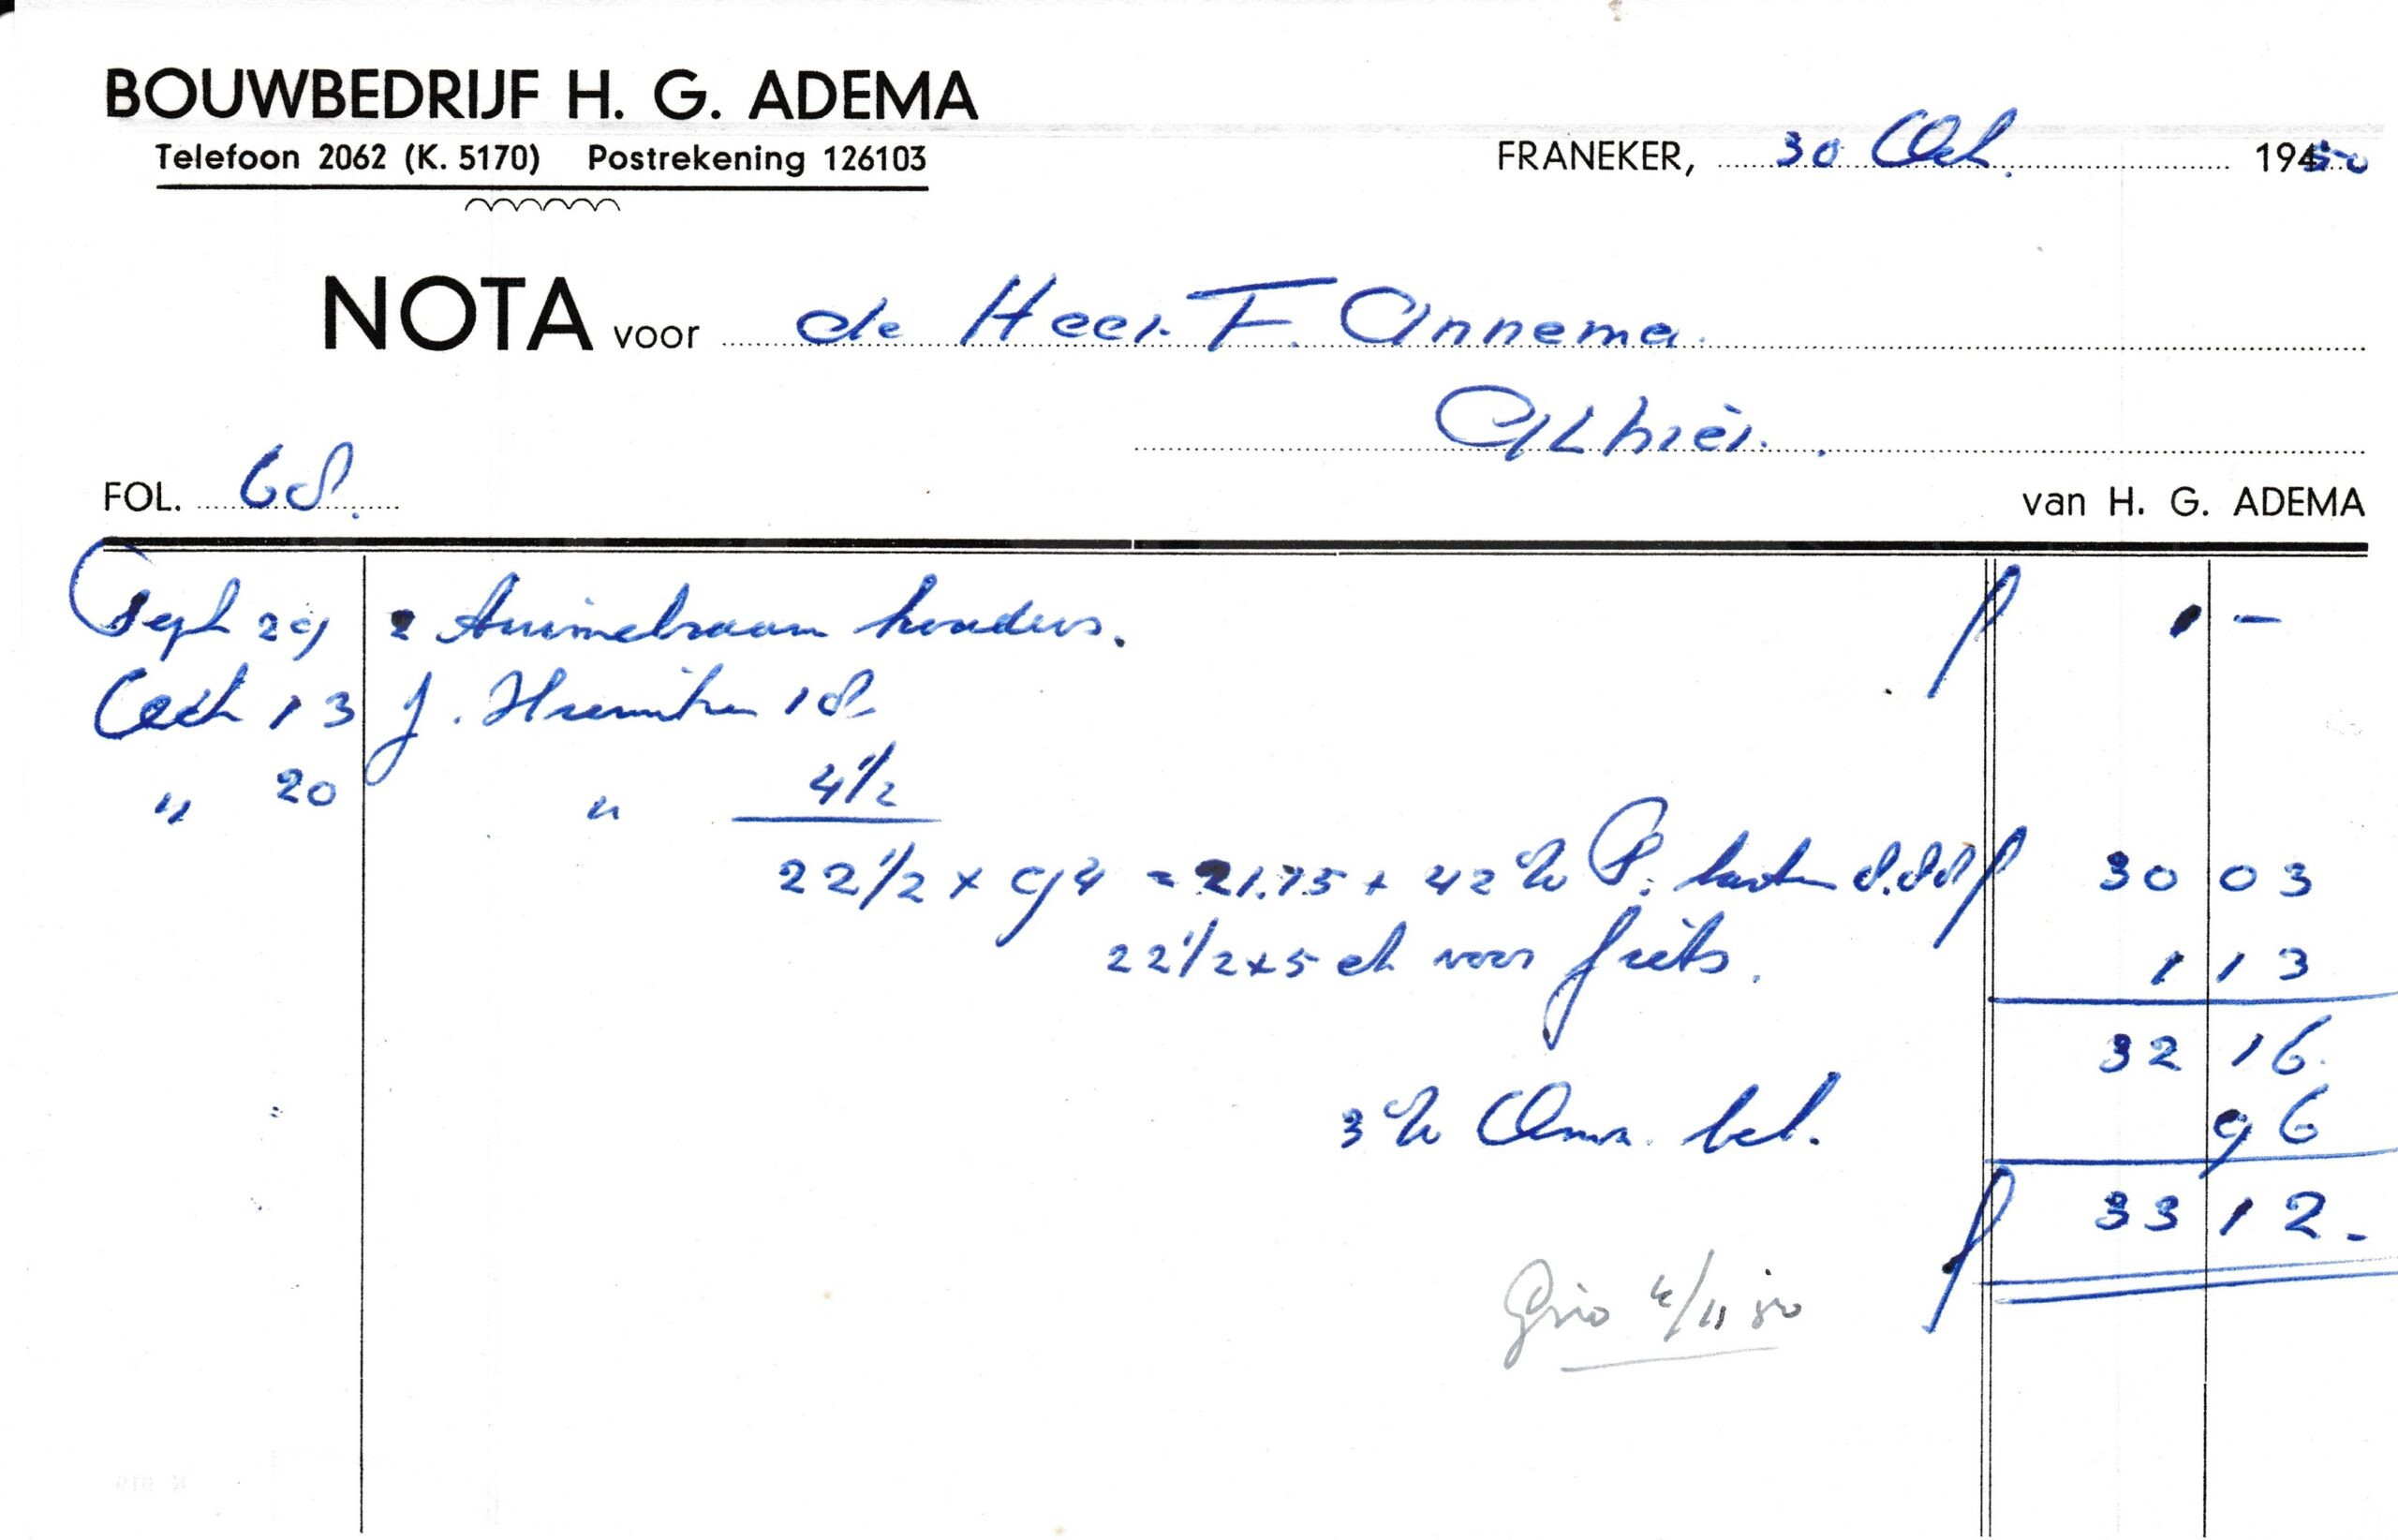 BOUWBEDRIJF H. G. ADEMA
Telefoon 2062 (K. 5170) Postrekening 126103
FRANEKER, 30 Oct. 1950
NOTA voor de Heer F. Annema
Alhier.
FOL. 68.
van H. G. ADEMA
Sept 29 2 houders. f 1 -
Oct 13 J. 18
" 20 " 4 1/2
22 1/2 x 94 = 21.15 + 42 % S. lasten 8.88 f 30 03
22 1/2 x 5 ct voor fiets. 1 13
32 16
3 % Omz. bel. 96
f 33 12
Giro 4/11 50